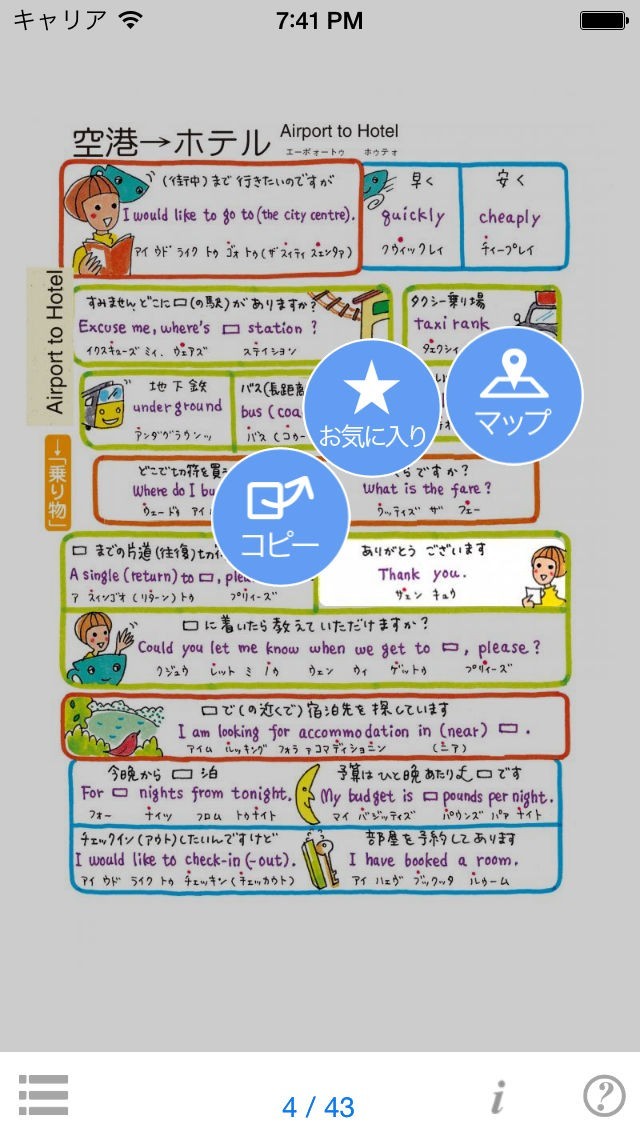 キャリア
7:41 PM
空港→ホテル Airport to Hotel
エーポォートゥ ホゥテォ
(街中)まで行きたいのですが
I would like to go to (the city centre).
アイ ウド ライク トゥ ゴォ トゥ(ザ スィティ スェンタァ)
早く
quickly
クウィックレイ
安く
cheaply
チィープレイ
Airport to Hotel
→「乗り物」
すみません、どこに□(の駅)がありますか?
Excuse me, where's □ station ?
イクスキューズ ミィ、ウェアズ ステイション
タクシー乗り場
taxi rank
地下鉄
underground
アンダグラウンッ
バス(長距離
bus (coa
バス (コゥー
お気に入り
マップ
コピー
どこで切符を買
Where do I bu
ウェードゥ アイ
らですか?
What is the fare ?
ウッティズ ザ フェー
□ までの片道(往復)
A single (return) to □, plea
ア スィンゴォ (リターン) トゥ プリィーズ
ありがとう ございます
Thank you.
サェン キュウ
□ に着いたら教えていただけますか?
Could you let me know when we get to □, please ?
クジュウ レット ミ ノゥ ウェン ウィ ゲットゥ プリィーズ
□で(の近くで)宿泊先を探しています
I am looking for accommodation in (near) □ .
アイム ルッキング フォラ アコマディショーニン (ニア)
今晩から □ 泊
For □ nights from tonight.
フォー ナイツ フロム トゥナイト
予算はひと晩あたり£□です
My budget is □ pounds per night.
マイ バジッティズ パウンズ パァ ナイト
チェックイン(アウト)したいんですけど
I would like to check-in (-out).
アイ ウド ライク トゥ チェッキン(チェッカウト)
部屋を予約してあります
I have booked a room.
アイ ハェヴ ブックッタ ルゥーム
4 / 43
i
?